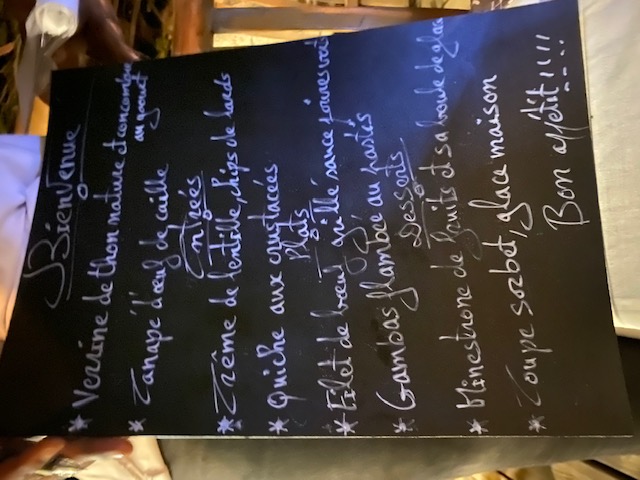 Bienvenue
* Verrine de thon mature et concombre
au yaourt
* Canapé d'œuf de caille
Entrées
* Crème de lentille, chips de lards
* Quiche aux crustacées
Plats
* Filet de bœuf grillé sauce poivres vert
* Gambas flambée au pastis
Desserts
* Minestrone de fruits et sa boule de glac
* Coupe sorbet, glace maison
Bon appétit !!!!